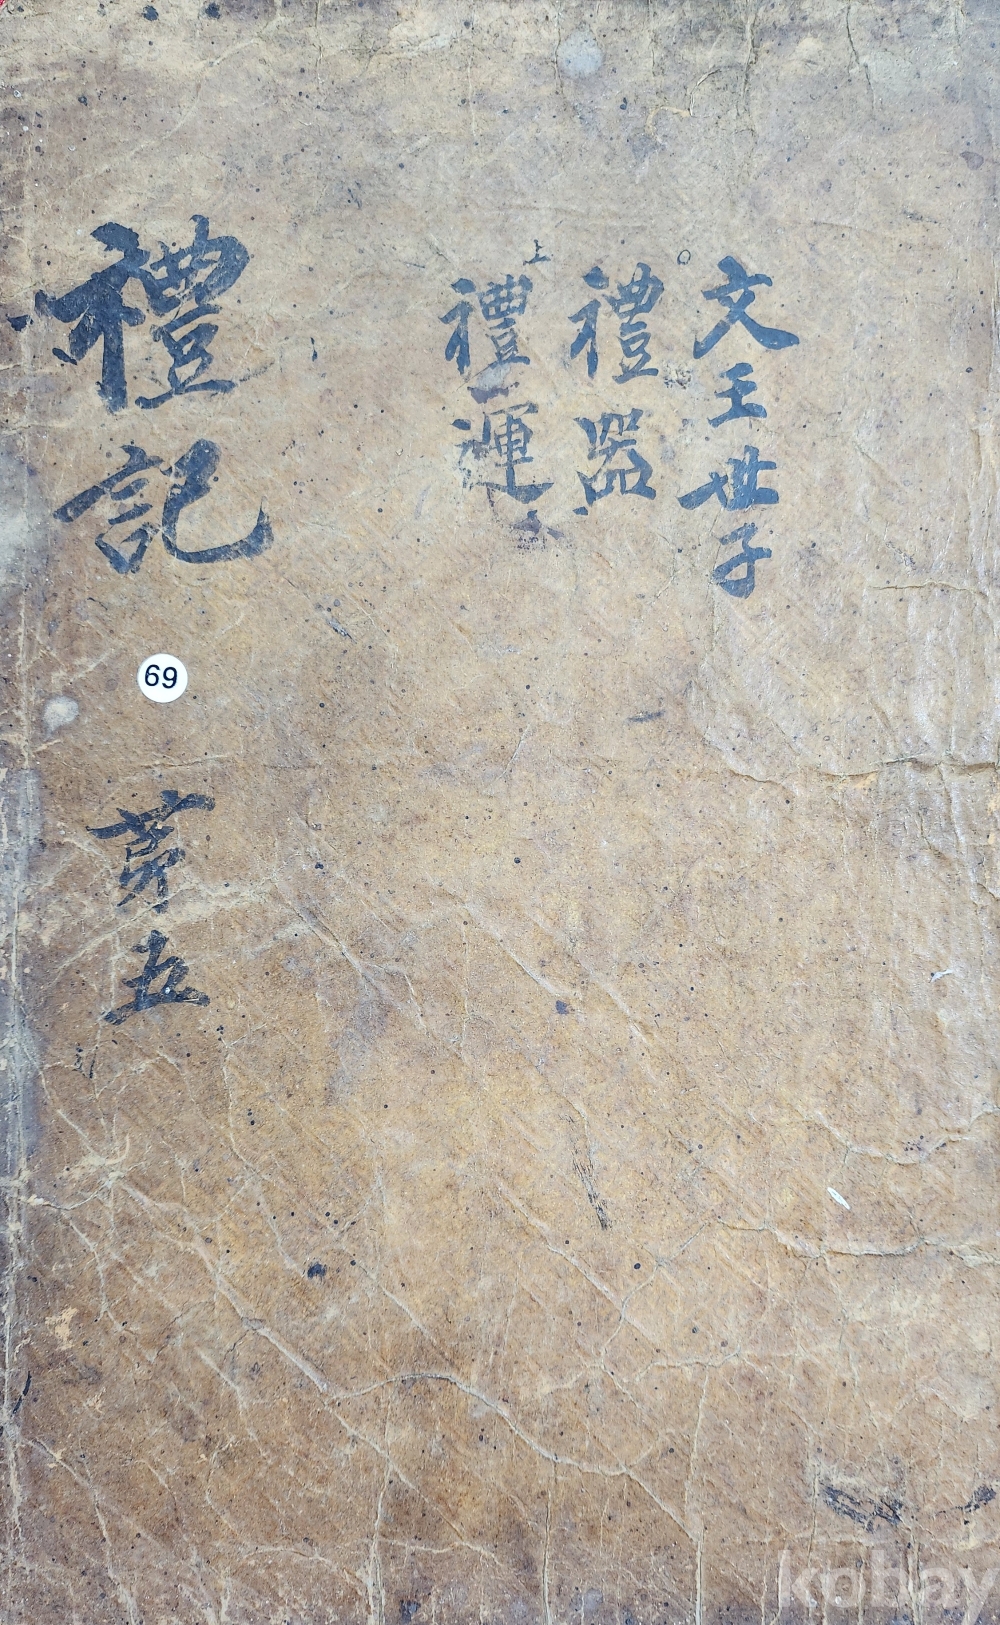 文王世子
禮器
上
禮運
禮記
69
第五
kobay